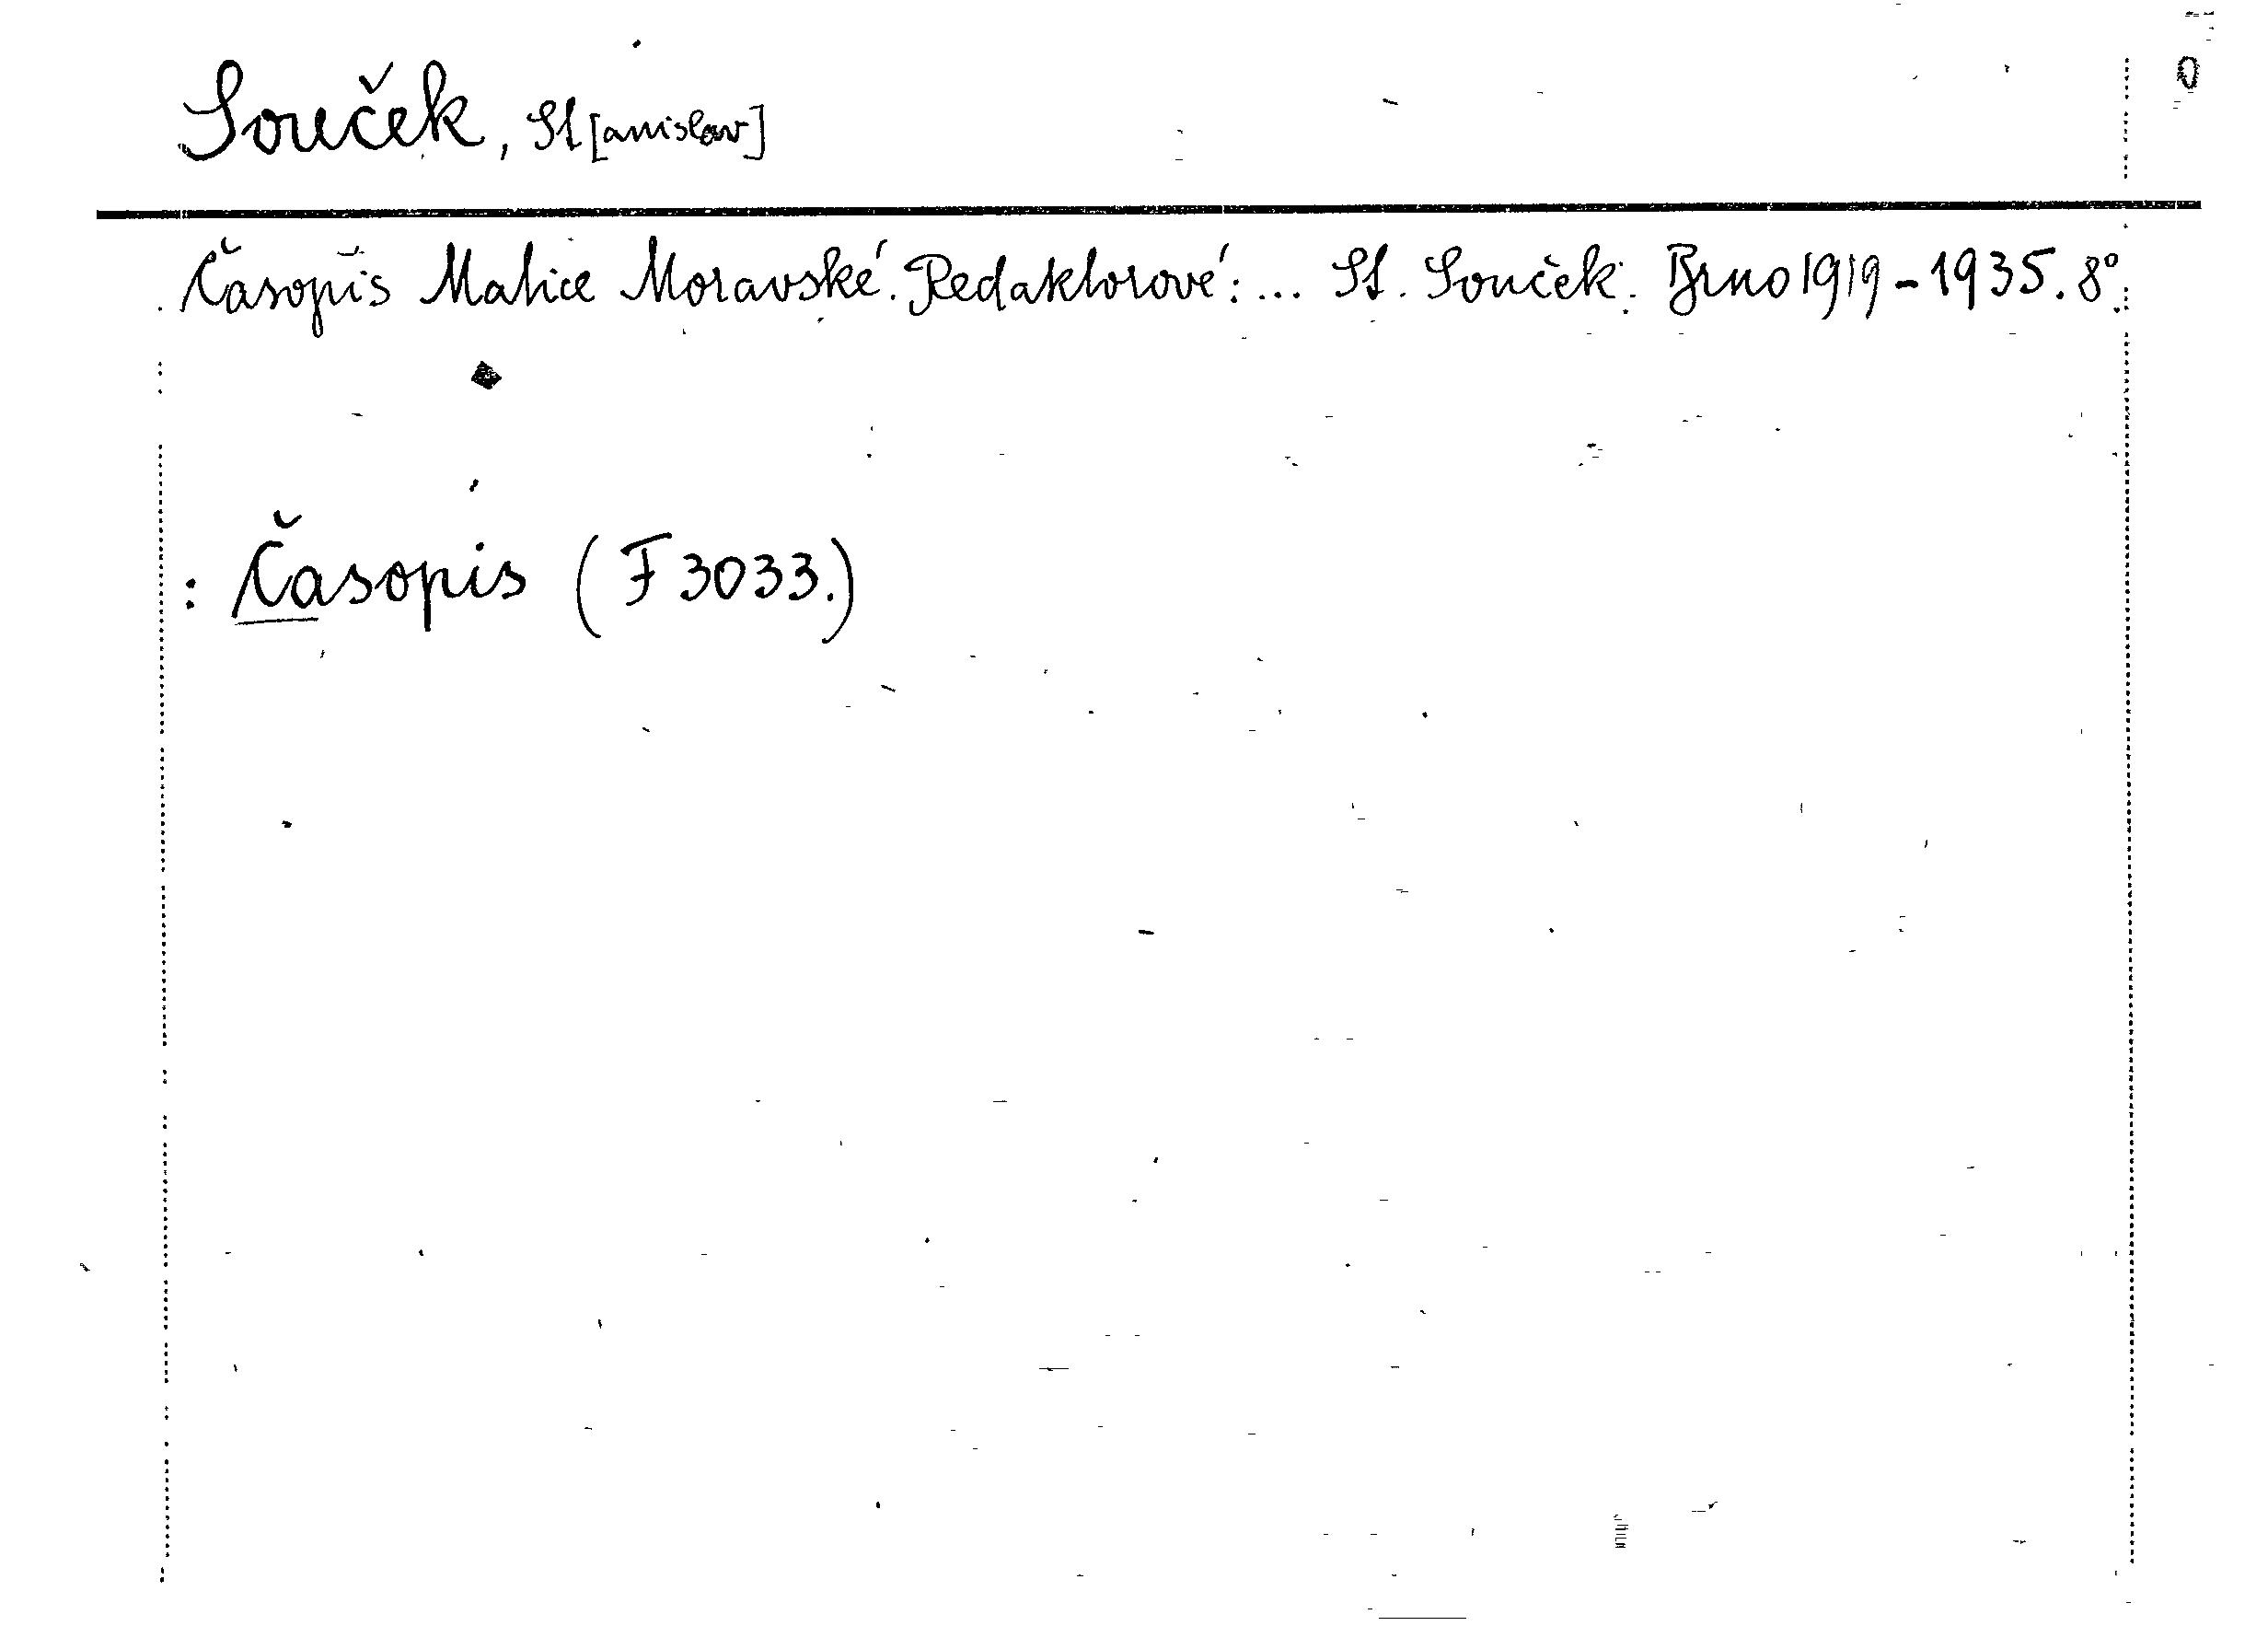 Souček, St[anislav]
Časopis Matice Moravské. Redaktorové: ... St. Souček. Brno 1919-1935. 8°.
: Časopis (F 3033.)